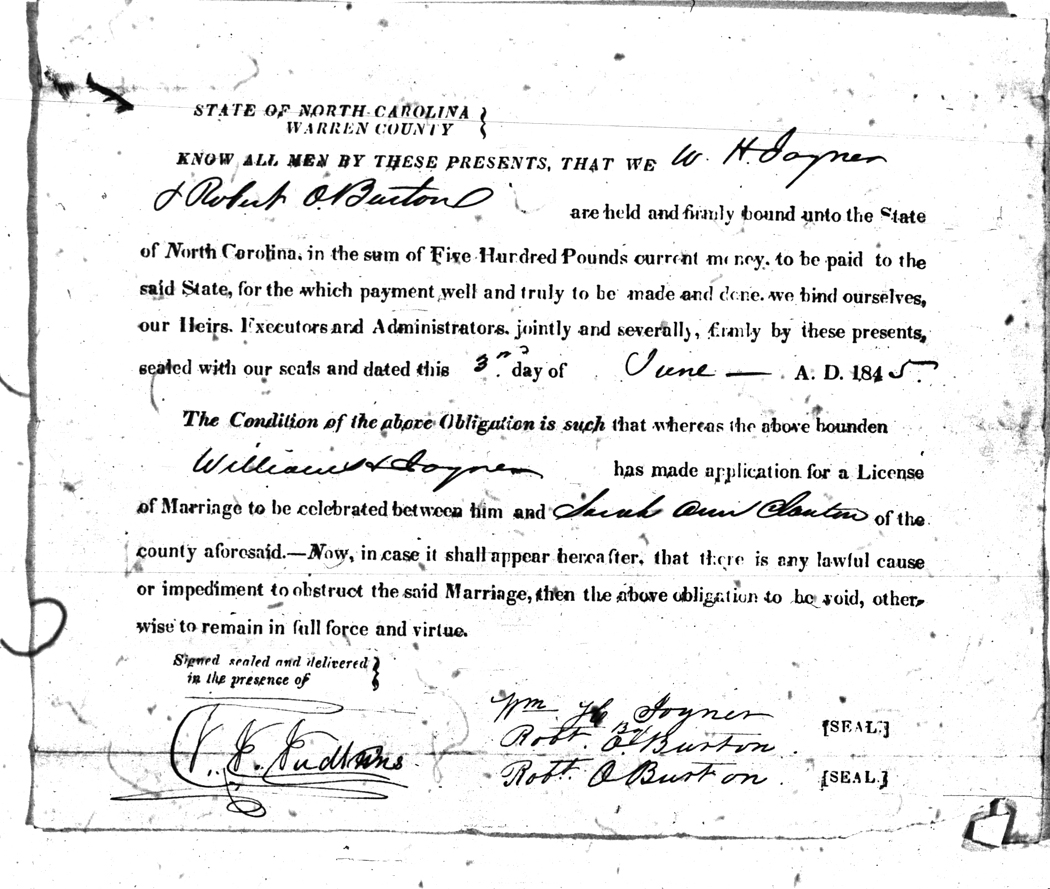 STATE OF NORTH CAROLINA
WARREN COUNTY
KNOW ALL MEN BY THESE PRESENTS, THAT WE W. H. Joyner
& Robert O. Burton are held and firmly bound unto the State
of North Carolina, in the sum of Five Hundred Pounds current money, to be paid to the
said State, for the which payment well and truly to be made and done, we bind ourselves,
our Heirs, Executors and Administrators, jointly and severally, firmly by these presents,
sealed with our seals and dated this 3rd day of June — A. D. 1845.
The Condition of the above Obligation is such that whereas the above bounden
William H Joyner has made application for a License
of Marriage to be celebrated between him and Sarah Ann Clanton of the
county aforesaid.—Now, in case it shall appear hereafter, that there is any lawful cause
or impediment to obstruct the said Marriage, then the above obligation to be void, other-
wise to remain in full force and virtue.
Signed sealed and delivered
in the presence of
Wm. H Joyner [SEAL.]
By
Robt. O Burton
Robt. O Burton [SEAL.]
Judkins